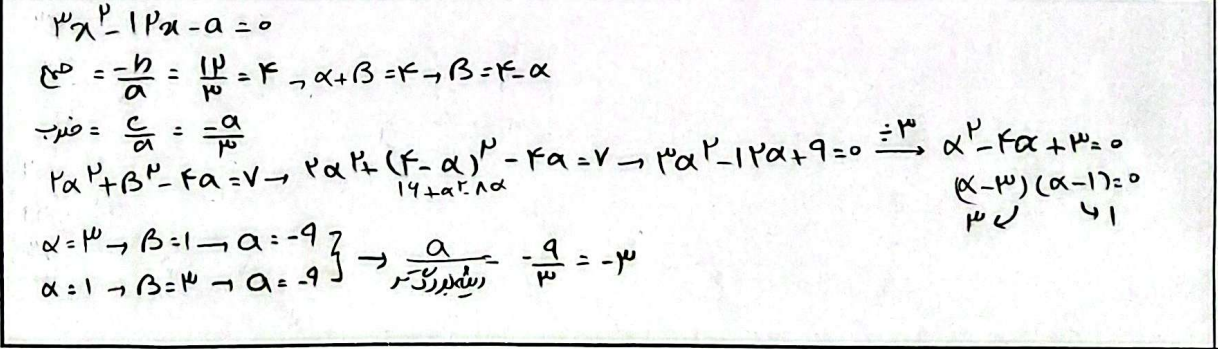 ۳x^۲ - ۱۲x - a = ۰
جمع = -b/a = ۱۲/۳ = ۴ → α + β = ۴ → β = ۴ - α
ضرب = c/a = -a/۳
۲α^۲ + β^۲ - ۴α = ۷ → ۲α^۲ + (۴ - α)^۲ - ۴α = ۷ → ۳α^۲ - ۱۲α + ۹ = ۰ ÷۳→ α^۲ - ۴α + ۳ = ۰
۱۶ + α^۲ - ۸α
(α - ۳)(α - ۱) = ۰
۳ ۱
α = ۳ → β = ۱ → a = -۹
α = ۱ → β = ۳ → a = -۹ } → a/ریشه بزرگ‌تر = -۹/۳ = -۳